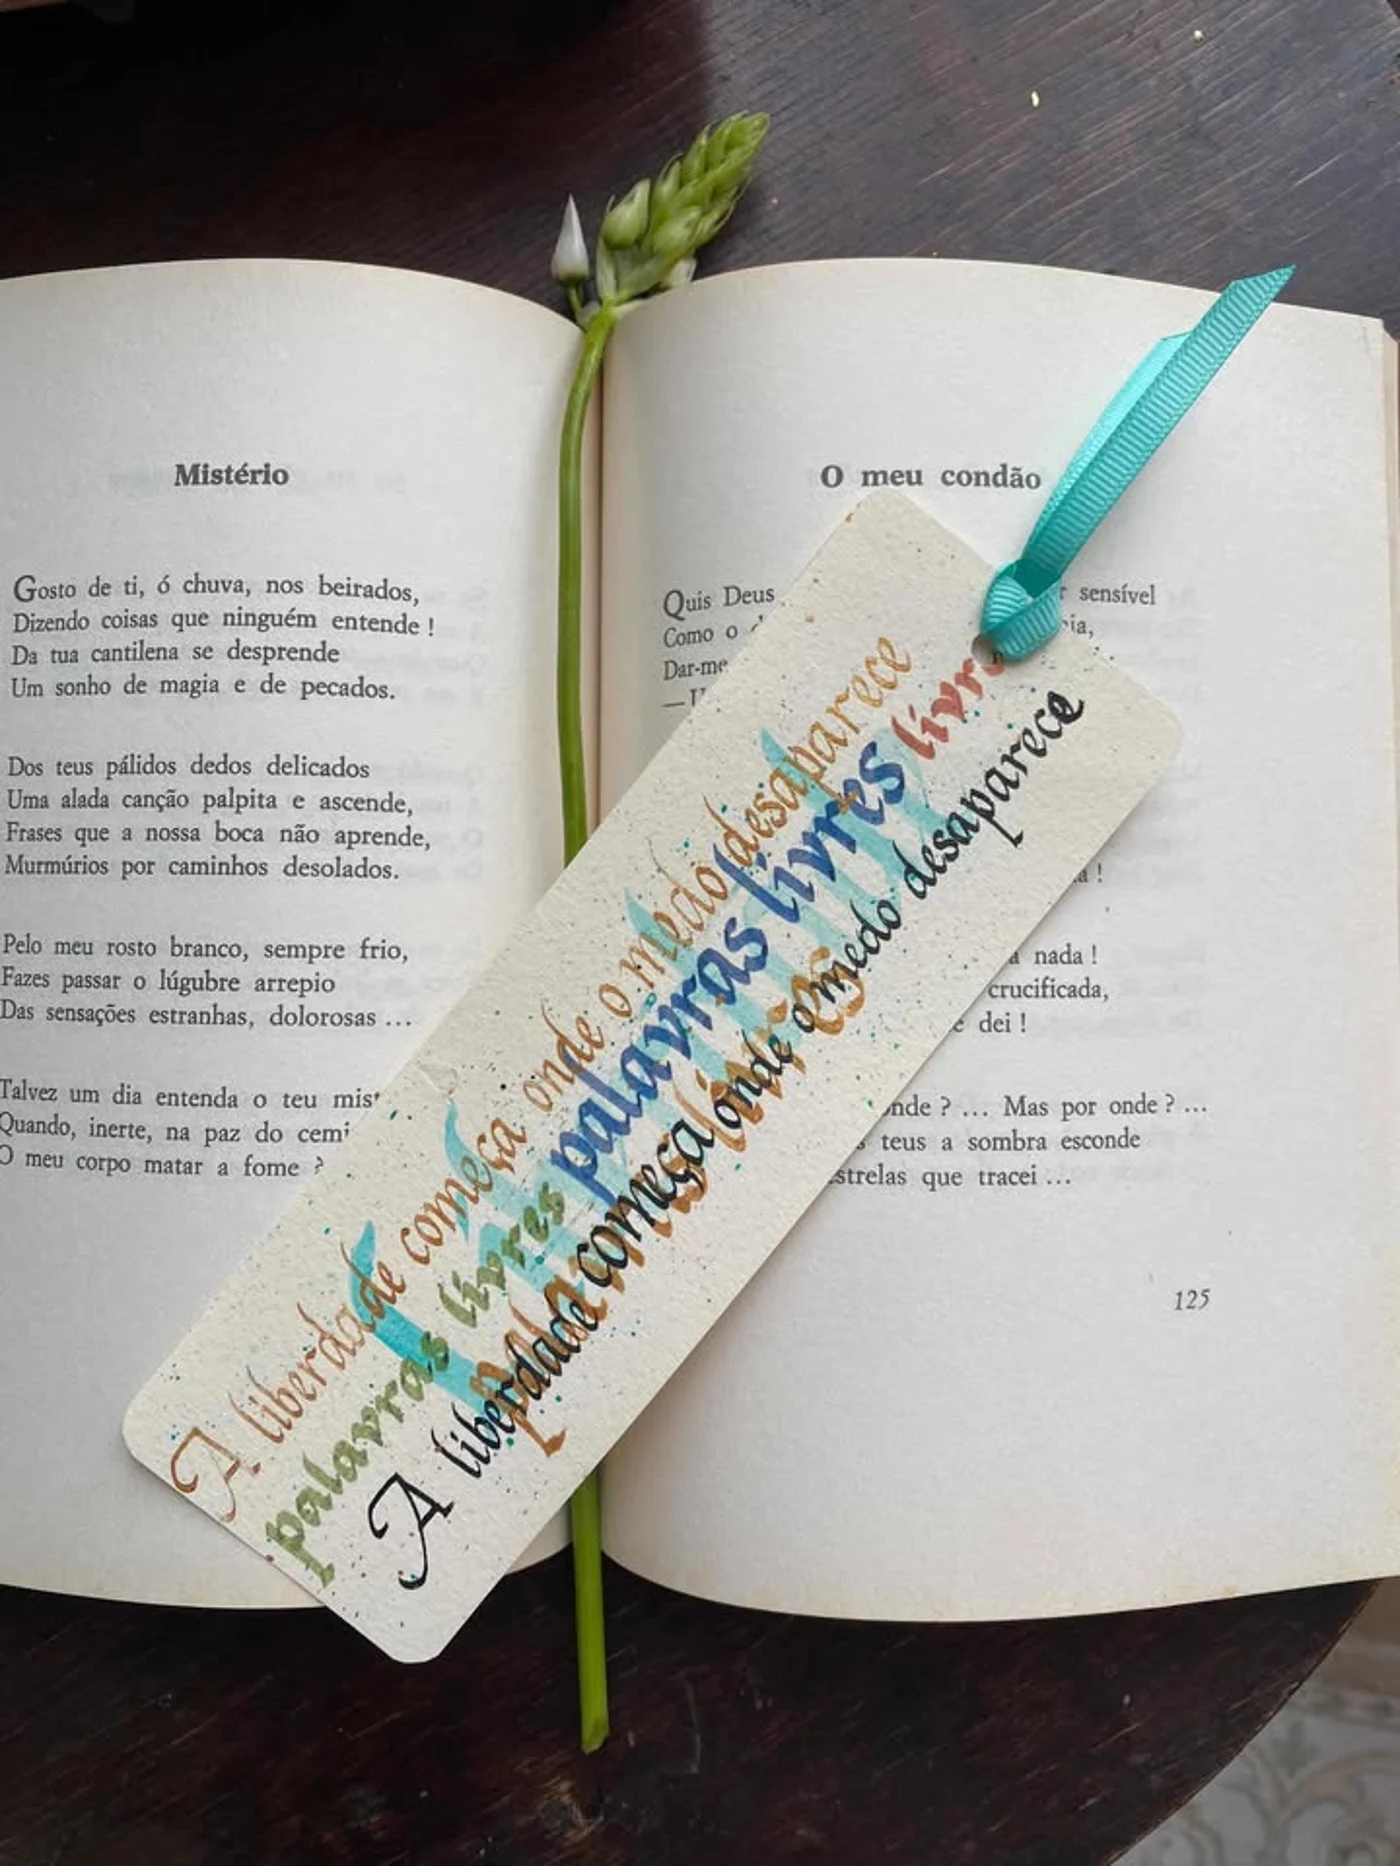 Mistério
Gosto de ti, ó chuva, nos beirados,
Dizendo coisas que ninguém entende !
Da tua cantilena se desprende
Um sonho de magia e de pecados.
Dos teus pálidos dedos delicados
Uma alada canção palpita e ascende,
Frases que a nossa boca não aprende,
Murmúrios por caminhos desolados.
Pelo meu rosto branco, sempre frio,
Fazes passar o lúgubre arrepio
Das sensações estranhas, dolorosas ...
Talvez um dia entenda o teu mist
Quando, inerte, na paz do cemi
O meu corpo matar a fome ?
O meu condão
Quis Deus sensível
Como o
Dar-me
—
nada !
crucificada,
dei !
onde ? ... Mas por onde ? ...
teus a sombra esconde
estrelas que tracei ...
125
A liberdade começa onde o medo desaparece
palavras livres palavras livres livre
palavras livres
A liberdade começa onde o medo desaparece